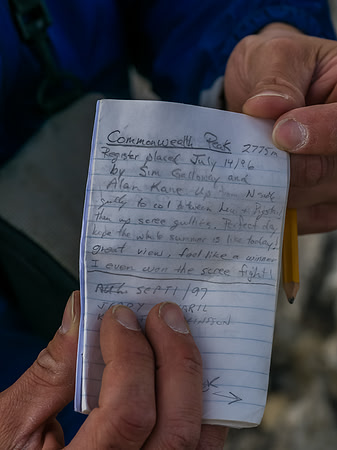 Commonwealth Peak 2775m
Register placed July 14/96
by Sim Galloway and
Alan Kane Up from N-W
gully to col between here & Pigstail
then up scree gullies. Perfect day,
hope the whole summer is like today.
great view, feel like a winner
I even won the scree fight!
SEPT 1/97